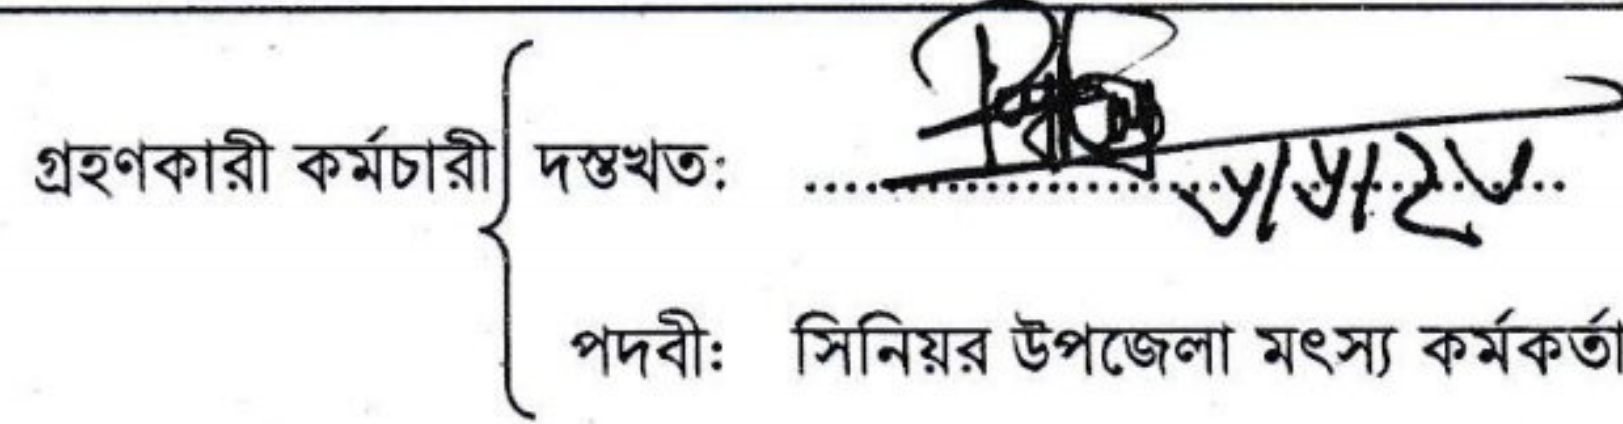 গ্রহণকারী কর্মচারী দস্তখত: ..........................................
পদবী: সিনিয়র উপজেলা মৎস্য কর্মকর্তা